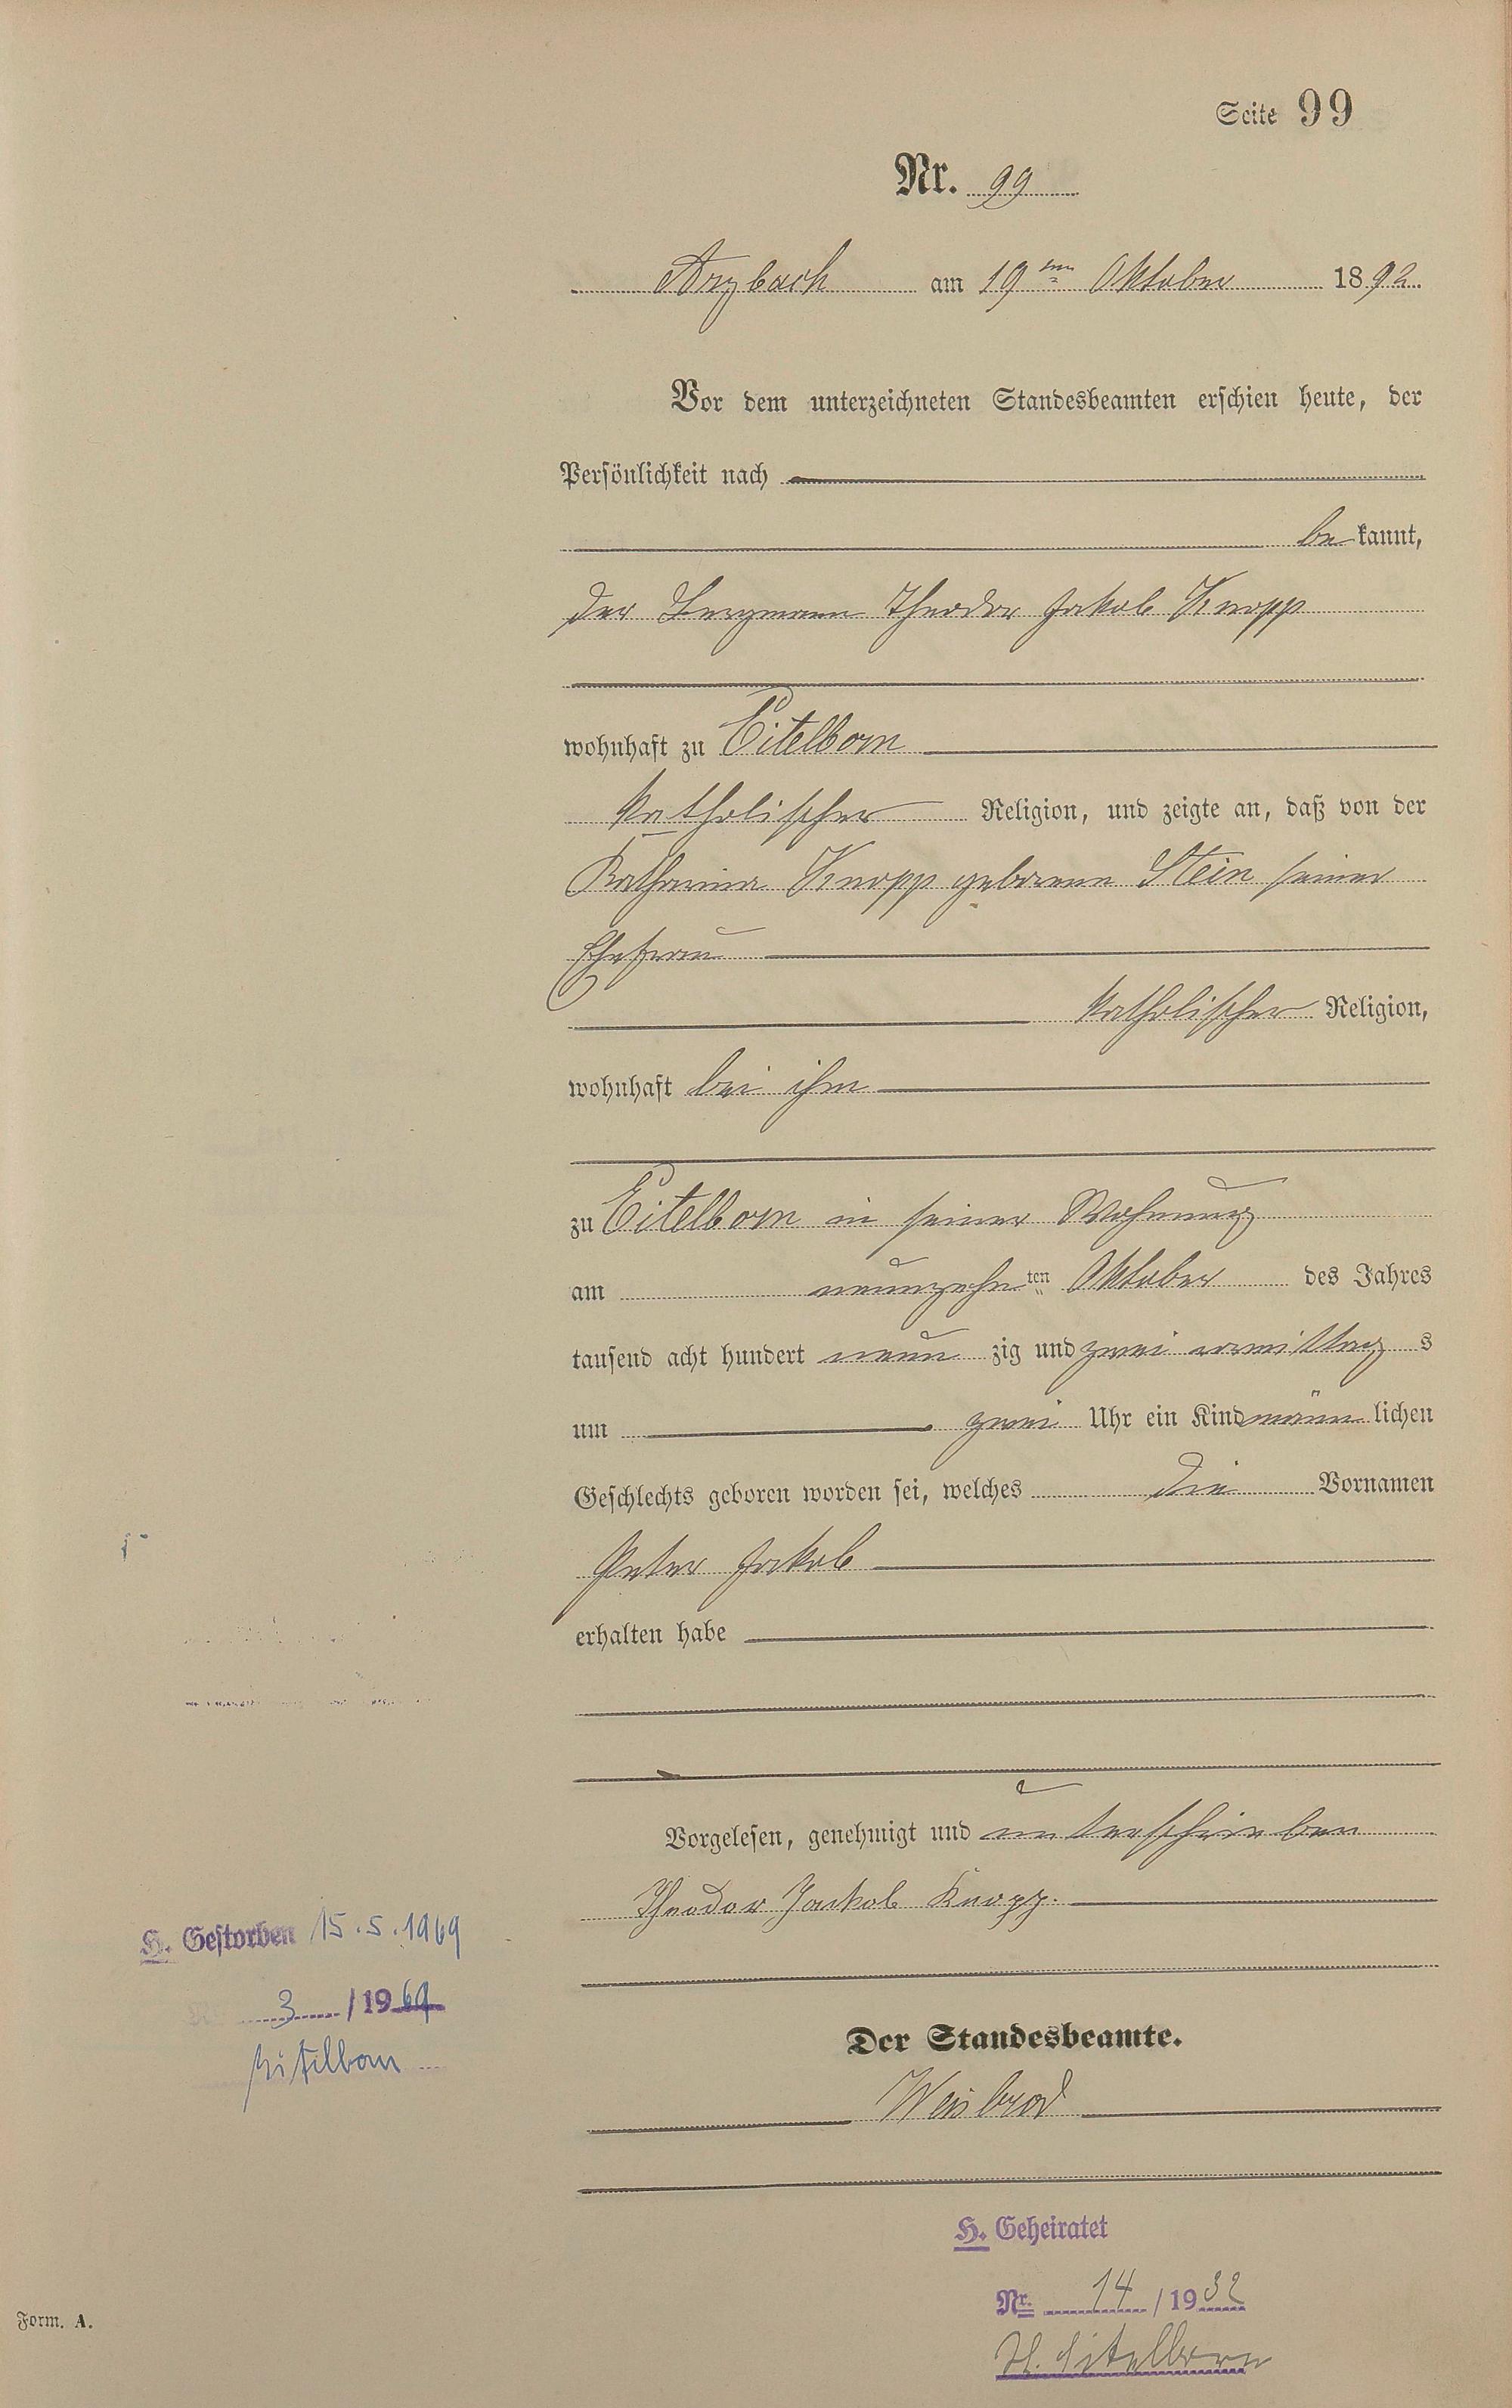 Seite 99
Nr. 99
Arzbach am 19ten Oktober 1892.
Vor dem unterzeichneten Standesbeamten erschien heute, der
Persönlichkeit nach
be kannt,
der Bergmann Theodor Jakob Knopp
wohnhaft zu Eitelborn
katholischer Religion, und zeigte an, daß von der
Katharina Knopp geborene Stein seiner
Ehefrau
katholischer Religion,
wohnhaft bei ihm
zu Eitelborn in seiner Wohnung
am neunzehnten Oktober des Jahres
tausend acht hundert neun zig und zwei vormittag s
um zwei Uhr ein Kind männ lichen
Geschlechts geboren worden sei, welches die Vornamen
Peter Jakob
erhalten habe
Vorgelesen, genehmigt und unterschrieben
Theodor Jackob Knopp.
H. Gestorben 15.5.1969
3 /1969
Eitelborn
Der Standesbeamte.
Weisbrod
H. Geheiratet
Nr. 14 /1932
St. Eitelborn
Form. A.